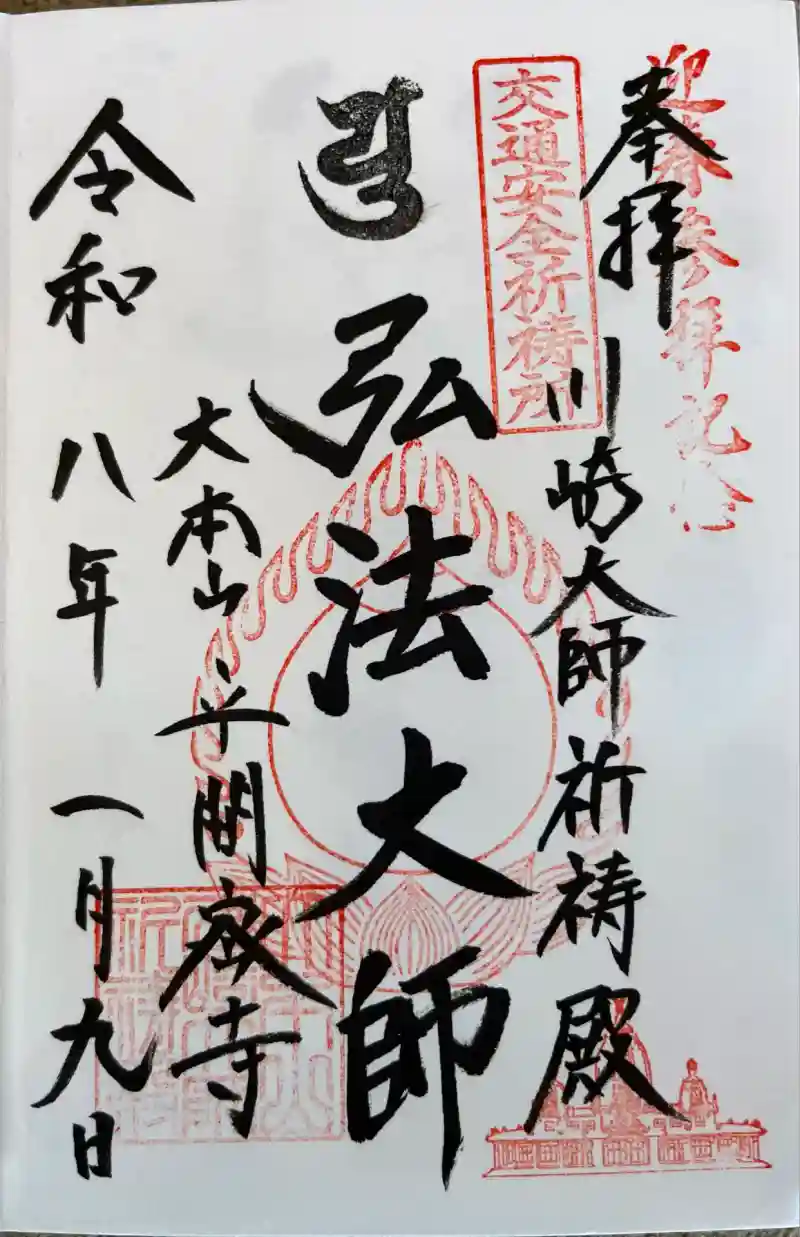 迎春参拝記念
奉拝
川崎大師祈祷殿
交通安全祈祷所
弘法大師
大本山
平間寺
令和八年一月九日